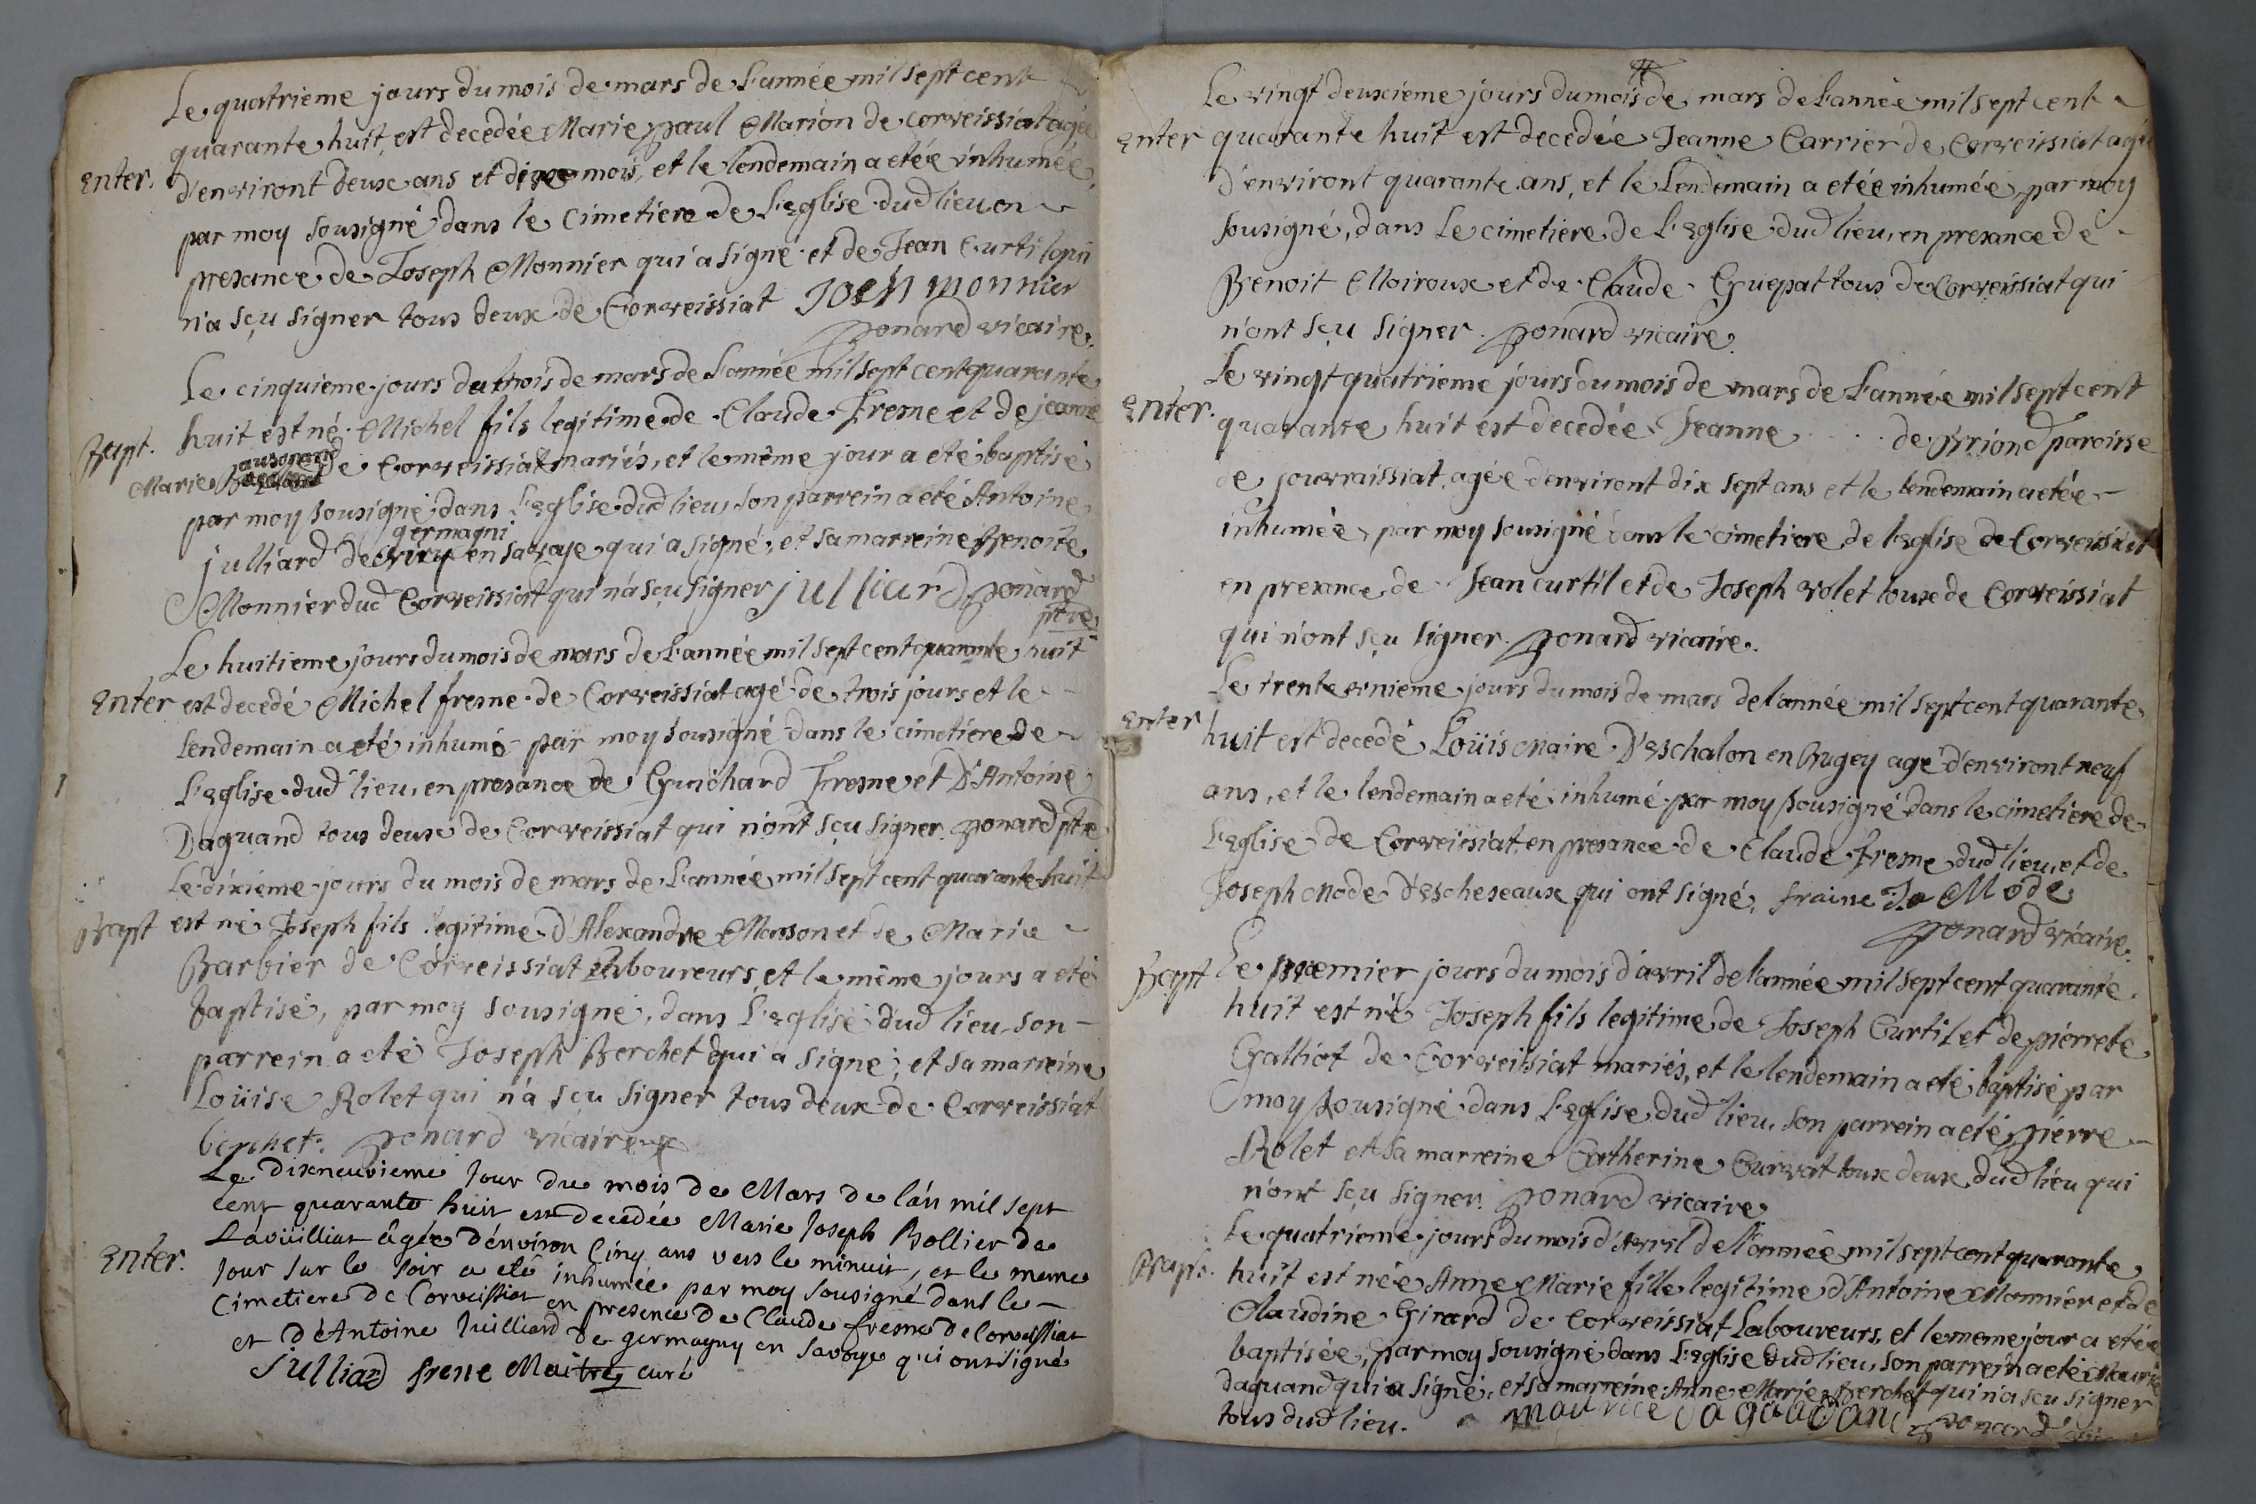 Le quatrieme jours du mois de mars de L'année mil sept cent
quarante huit est decedée Marie paul Marion de Corveissiat agée
Enter. d'environt deux ans et dixe mois, et le lendemain a etée inhumée,
par moy sousigné dans le cimetiere de L'Eglise dud lieu en
presance de Joseph Monnier qui a signé et de Jean Curtil qui
n'a sçu signer tous deux de Corveissiat JOSEH monnier
ponard vicaire.
Le cinquieme jours du mois de mars de L'année mil sept cent quarante
huit est né Michel fils legitime de Claude Fresne et de jeanne
Bapt.
Marie de Corveissiat mariés, et le même jour a eté baptisé
par moy sousigné, dans L'Eglise dud lieu, son parrein a eté Antoine
germagni
julliard de en savoye qui a signé, et sa marreine Benoite
Monnier dud Corveissiat qui n'a sçu signer julliard ponard
ptre
Le huitieme jours du mois de mars de L'année mil sept cent quarante huit
Enter est decedé Michel fresne de Corveissiat agé de trois jours et le
Lendemain a eté inhumé par moy sousigné dans le cimetiere de
L'Eglise dud lieu, en presance de Guichard Fresne et D'Antoine
Daguand tous deux de Corveissiat qui n'ont sçu signer ponard ptre
Le dixieme jours du mois de mars de L'année mil sept cent quarante huit
Bapt est né Joseph fils legitime d'Alexandre Masson et de Marie
Barbier de Corveissiat Laboureurs, et le même jours a eté
baptisé, par moy sousigné, dans L'Eglise dud lieu, son
parrein a eté Joseph Berchet qui a signé, et sa marreine
Loüise Rolet qui n'a sçu signer tous deux de Corveissiat
berchet. ponard vicaire
Le dixneuvieme Jour du mois de Mars de l'an mil sept
cent quarante huit est decedée Marie Joseph Bollier de
Lavüilliat âgée d'environ cinq ans vers le minuit, et le meme
Enter. Jour sur le soir a eté inhumée par moy sousigné dans le
Cimetiere de Corveissiat en presence de Claude fresne de Corveissiat
et d'Antoine Juilliard de germagny en Savoye qui ont signé
Julliard frene Maitre curé
Le vingt deuxieme jours du mois de mars de L'année mil sept cent
Enter quarante huit est decedée Jeanne Carrier de Corveissiat agée
d'environt quarante ans, et le Lendemain a etée inhumée, par moy
sousigné, dans Le cimetiere de L'Eglise dud lieu, en presance de
Benoit Moiroux et de Claude Guepat tous de Corveissiat qui
n'ont sçu signer. ponard vicaire.
Le vingt quatrieme jours du mois de mars de L'année mil sept cent
Enter. quarante huit est decedée Jeanne .... de Briond paroisse
de jouvraissiat, agée d'environt dix sept ans et le lendemain a etée
inhumée, par moy sousigné dans le cimetiere de l'Eglise de Corveissiat
en presance de Jean curtil et de Joseph volet toux de Corveissiat
qui n'ont sçu signer. ponard vicaire.
Le trente unieme jours du mois de mars de l'année mil sept cent quarante
Enter huit est decedé Loüis Maire D'Eschalon en Bugey agé d'environt neuf
ans, et le lendemain a eté inhumé par moy sousigné dans le cimetiere de
L'Eglise de Corveissiat, en presance de Claude fresne dud lieu, et de
Joseph Mode d'Escheseaux qui ont signé. fraine Jo Mode
ponard vicaire.
Bapt Le premier jours du mois d'avril de l'année mil sept cent quarante
huit est né Joseph fils legitime de Joseph Curtil et de pierrete
Galliot de Corveissiat mariés, et le lendemain a eté baptisé par
moy sousigné dans L'Eglise dud lieu, son parrein a eté pierre
Rolet et sa marreine Catherine Curvat toux deux dud lieu qui
n'ont sçu signer. ponard vicaire
Le quatrieme jours du mois d'Avril de l'année mil sept cent quarante
Bapt. huit est née Anne Marie fille legitime d'Antoine Monnier et de
Claudine Girard de Corveissiat Laboureurs, et le meme jour a etée
baptisée, par moy sousigné dans L'Eglise dud lieu, son parrein a eté Maurice
daguand qui a signé, et sa marreine Anne Marie Berchet qui n'a sçu signer
tous dud lieu. maurice ponard